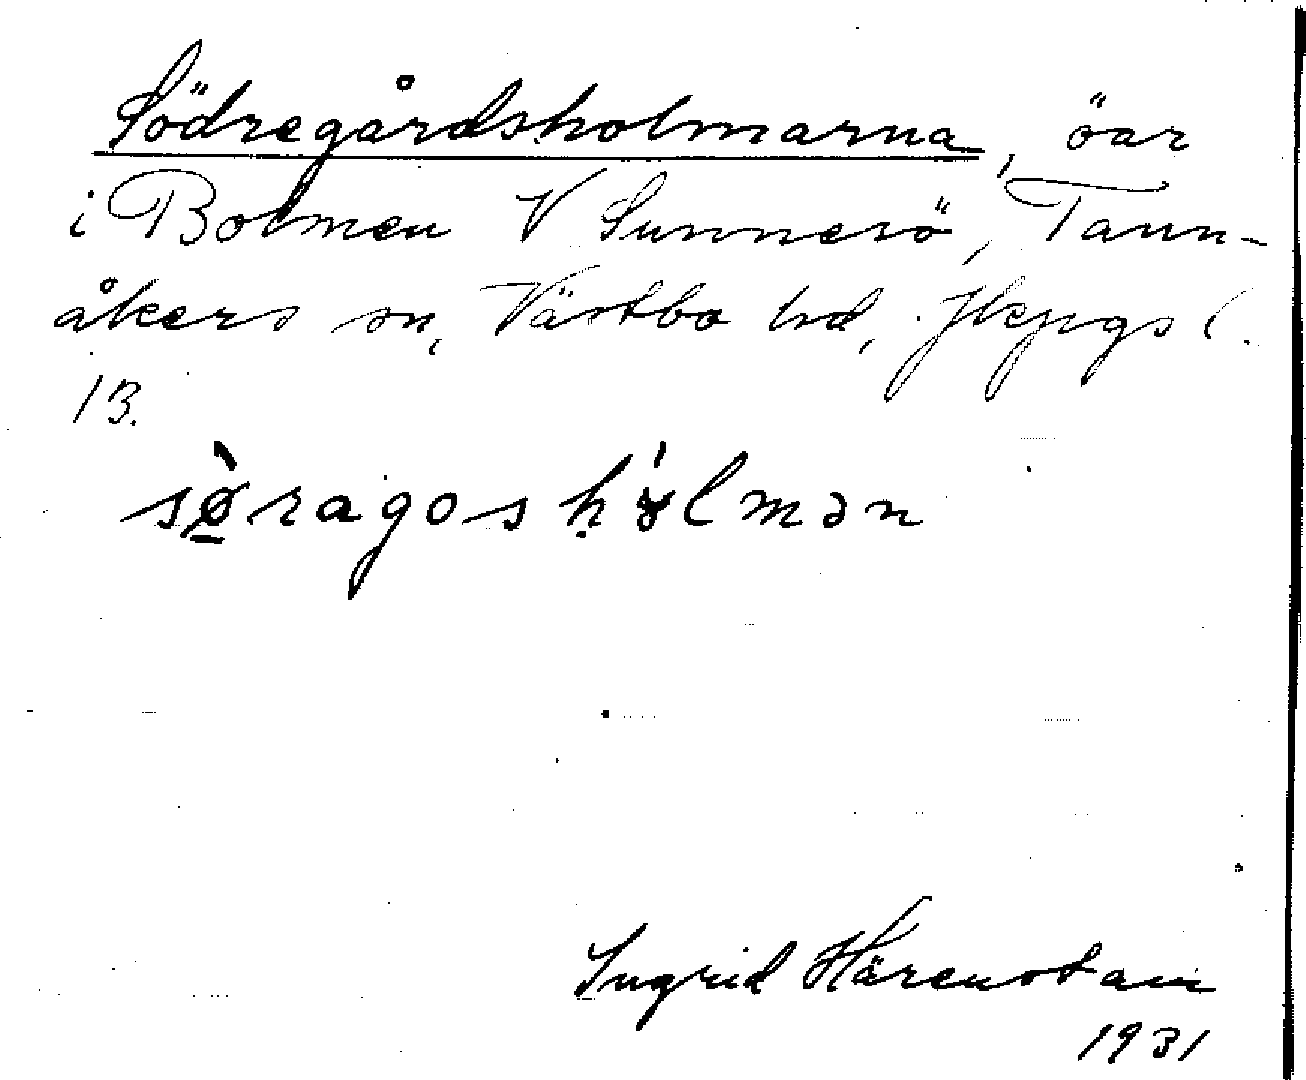 Södregårdsholmarna, öar
i Bolmen V Sunnerö, Tann-
åkers sn, Västbo hd, Jkpgs l.
13.
sø̀ragoshólmən
Ingrid Härenstam
1931